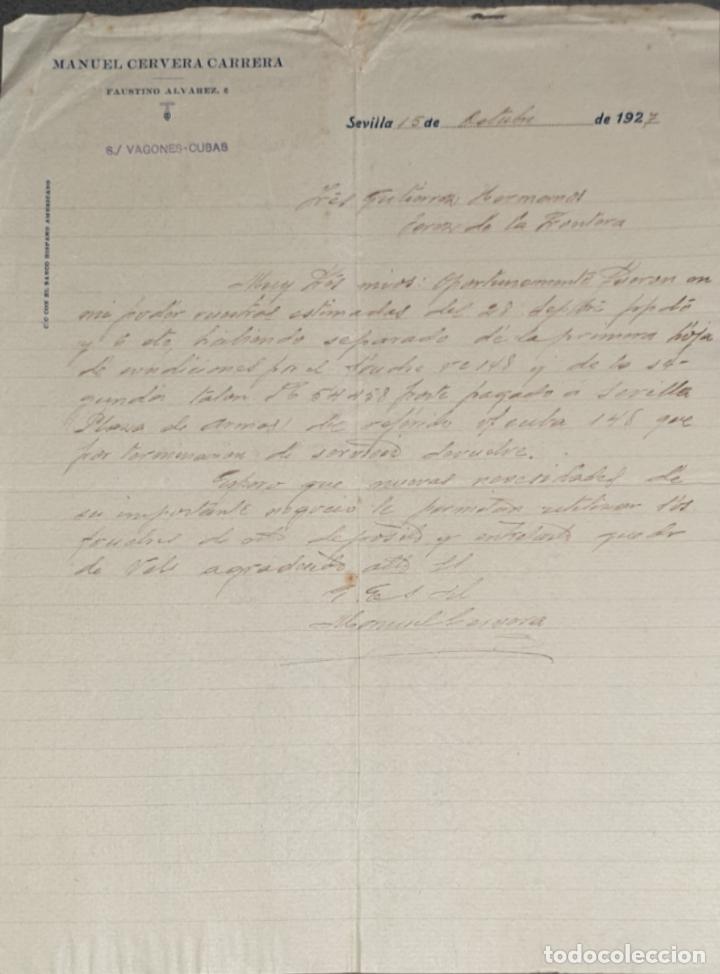 MANUEL CERVERA CARRERA
FAUSTINO ALVAREZ, 6
S./ VAGONES-CUBAS
C/C CON EL BANCO HISPANO AMERICANO
Sevilla 15 de Octubre de 1927
Sres Gutierrez Hermanos
Jerez de la Frontera
Muy Srs mios: Oportunamente fueron en
mi poder vuestras estimadas del 28 Septbre ppdo
y 6 cte, habiendo separado de la primera hoja
de condiciones por el foudre 148 y de la se-
gunda talon 54458 porte pagado a Sevilla
Plaza de Armas del referido cuba 148 que
por terminacion de servicio devuelve.
Espero que nuevas necesidades de
su importante negocio le permitan utilizar los
foudres de este deposito y entretanto queda
de Vds agradecido
Manuel Cervera
todocoleccion